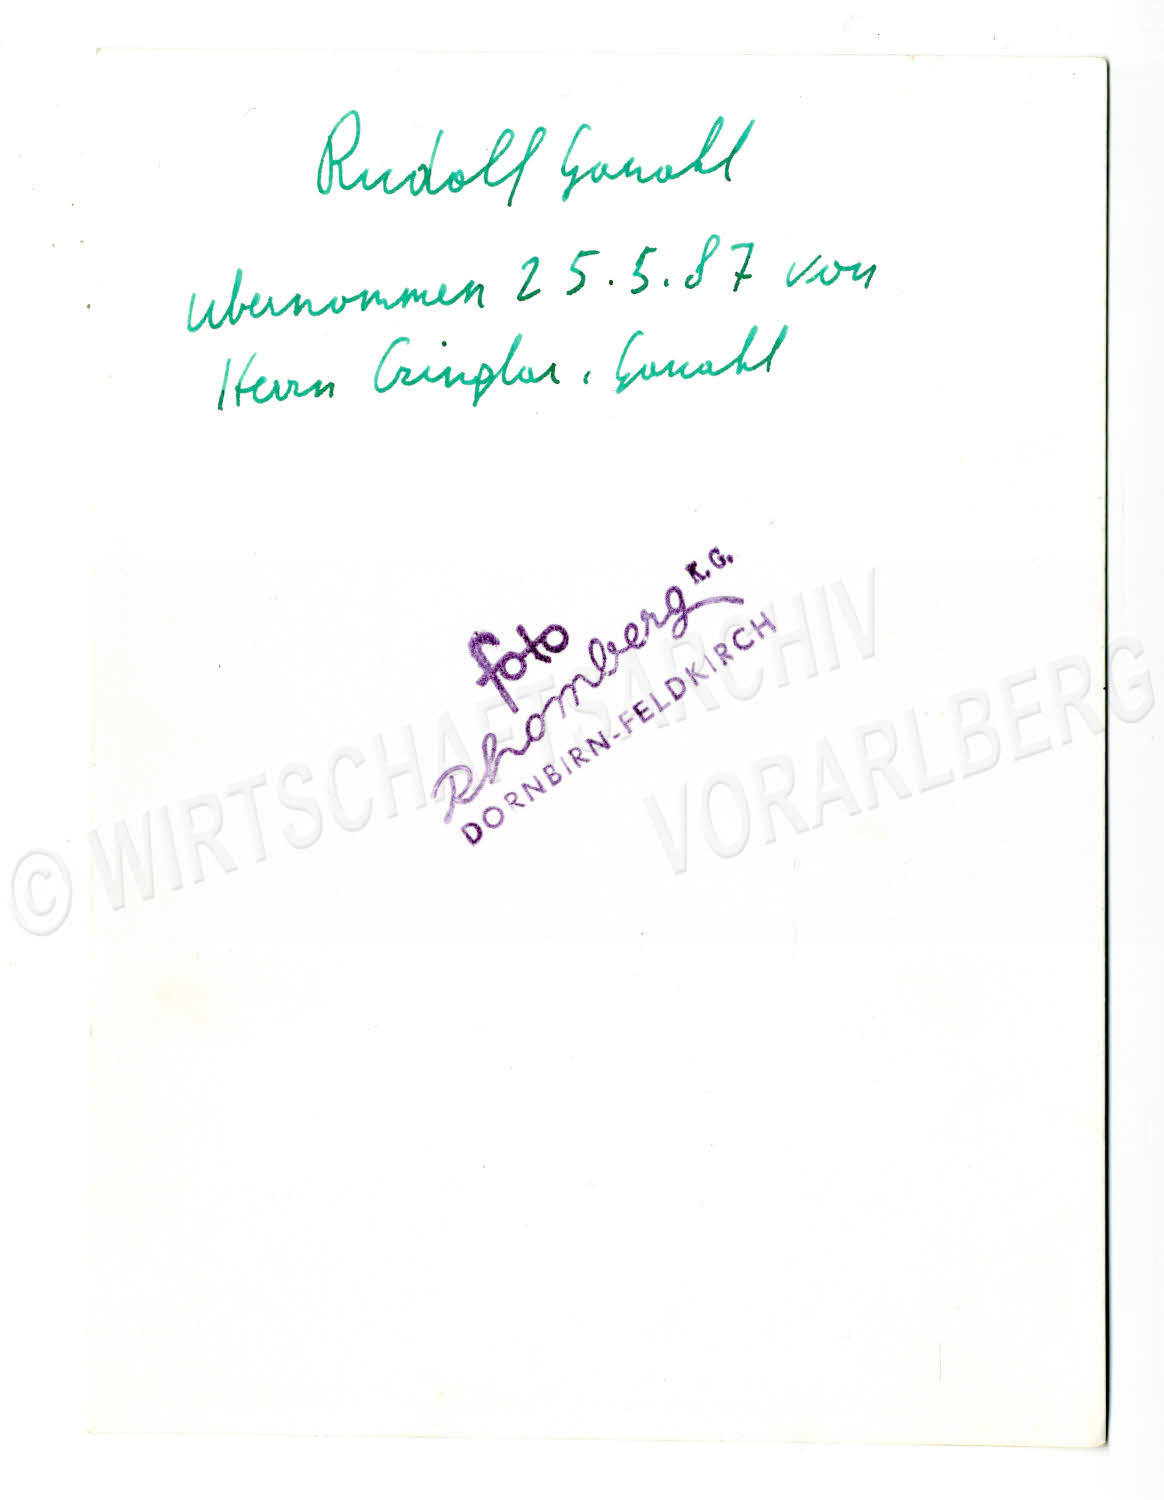 Rudolf Ganahl
übernommen 25.5.87 von
Herrn Ganahl
foto
Rhomberg K.G.
DORNBIRN-FELDKIRCH
© WIRTSCHAFTSARCHIV
VORARLBERG